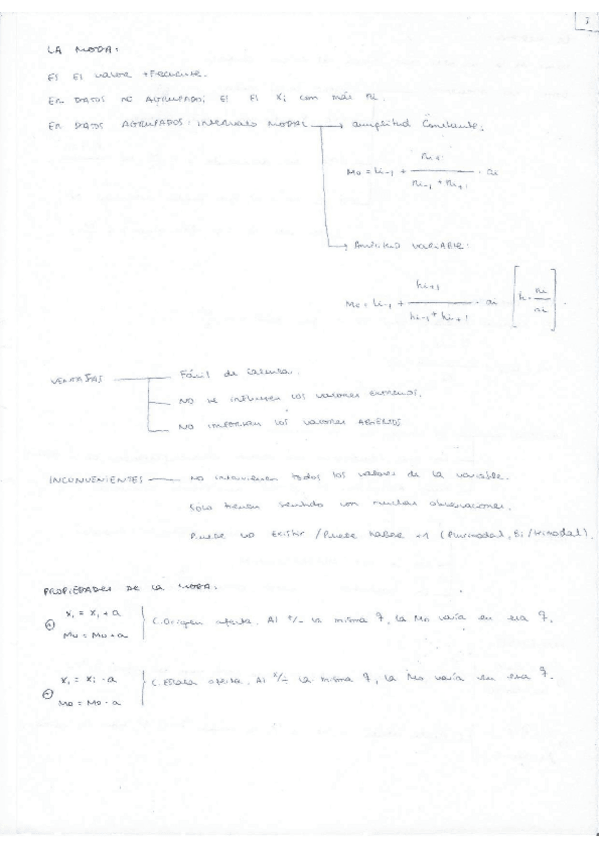 1
LA MODA:
ES EL VALOR + FRECUENTE.
EN DATOS NO AGRUPADOS; ES EL Xi CON MÁS ni.
EN DATOS AGRUPADOS: INTERVALO MODAL → amplitud Constante:
Mo = Li-1 + ni+1 / (ni-1 + ni+1) · ai
→ Amplitud VARIABLE:
Mo = Li-1 + hi+1 / (hi-1 + hi+1) · ai [h = ni / ai].
VENTAJAS — Fácil de calcular.
— NO se influyen los valores extremos.
— NO IMPORTAN los valores ABIERTOS
INCONVENIENTES — No intervienen todos los valores de la variable.
Solo tienen sentido con muchas observaciones.
Puede no existir / Puede haber +1 (Plurimodal, Bi/trimodal).
PROPIEDADES DE LA MODA:
Xi = Xi + a
Mo = Mo + a
C.Origen afecta. Al +/- la misma q, la Mo varía en esa q.
Xi = Xi · a
Mo = Mo · a
C.Escala afecta. Al x/÷ la misma q, la Mo varía en esa q.